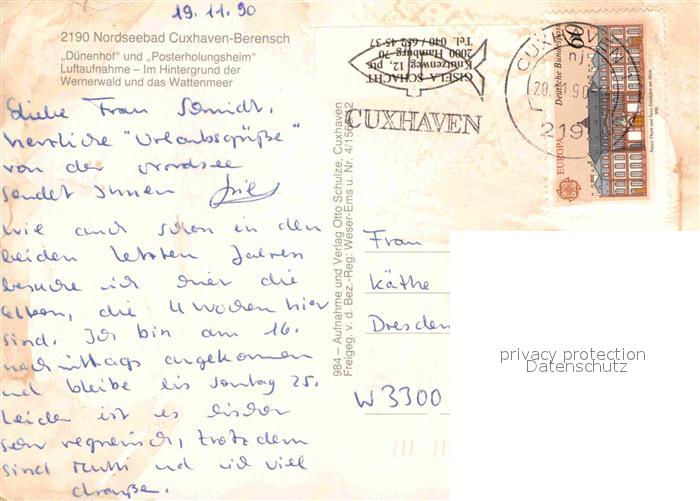 19.11.90
2190 Nordseebad Cuxhaven-Berensch
„Dünenhof" und „Posterholungsheim"
Luftaufnahme – Im Hintergrund der
Wernerwald und das Wattenmeer
Liebe Frau Schmidt,
herzliche "Urlaubsgrüße"
von der Nordsee
sendet Ihnen
Wie auch schon in den
beiden letzten Jahren
besuche ich hier die
Eltern, die 4 Wochen hier
sind. Ich bin am 16.
nachmittags angekommen
und bleibe bis Sonntag 25.
Leider ist es bisher
sehr regnerisch, trotzdem
sind Mutti und ich viel
draußen.
984 – Aufnahme und Verlag Otto Schulze, Cuxhaven
Freigeg. v. d. Bez.-Reg. Weser-Ems u. Nr. 4/
GISELA SCHACHT
Knutzenweg 12, ptr
2000 Hamburg 70
Tel. 040 / 652 45 37
CUXHAVEN
CUXHAVEN
20. 1.90
219
60
Deutsche Bundespost
EUROPA
Palais Thurn und Taxis Frankfurt am Main
1990
Frau
Käthe
Dresden
W 3300
privacy protection
Datenschutz